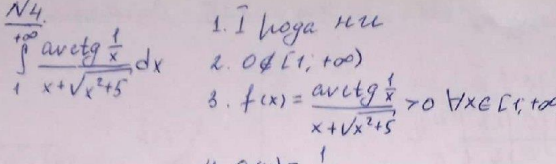 N4.
∫₁^{+∞} arctg(1/x) / (x+√(x²+5)) dx
1. I рода НИ
2. 0∉[1; +∞)
3. f(x) = arctg(1/x) / (x+√(x²+5)) >0 ∀x∈[1, +∞